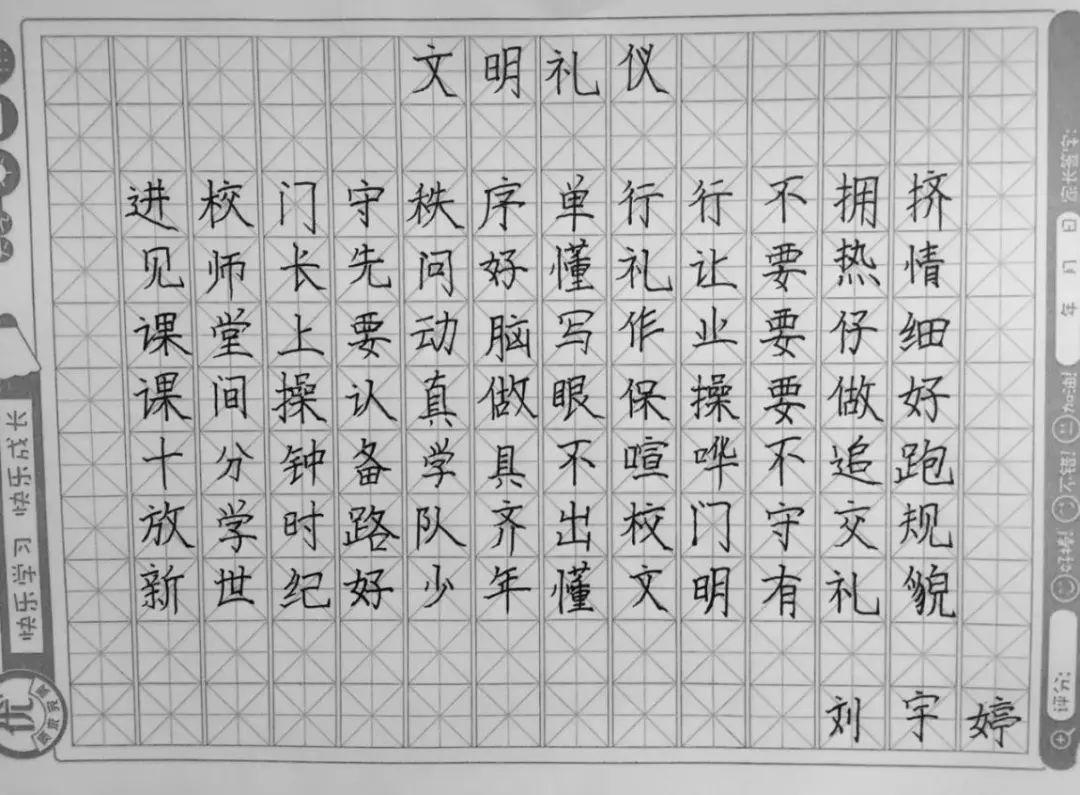 文明礼仪
进校门守秩序单行行不拥挤
见师长先问好懂礼让要热情
课堂上要动脑写作业要仔细
课间操认真做眼保操要做好
十分钟备学具不喧哗不追跑
放学时路队齐出校门守交规
新世纪好少年懂文明有礼貌
刘宇婷
快乐学习 快乐成长
优
年 月 日
评分:
不错!
加油!